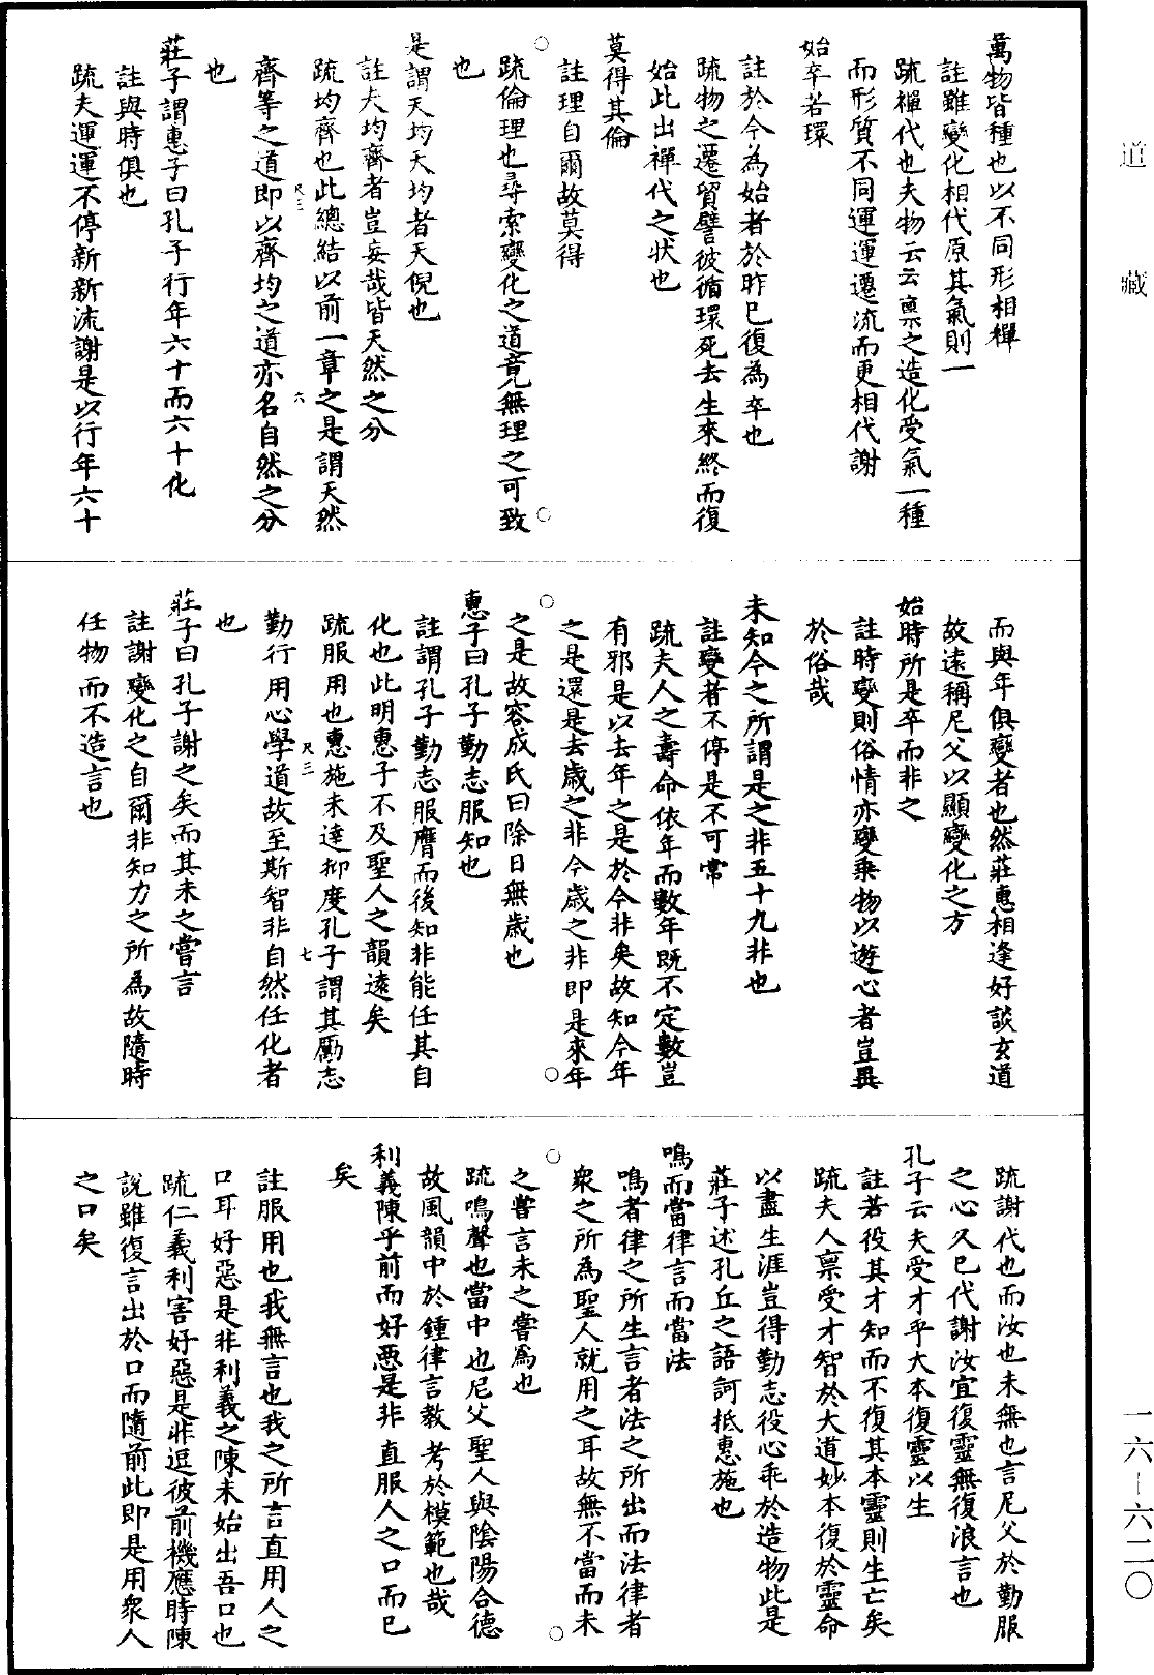 萬物皆種也以不同形相禪
註雖變化相代原其氣則一
疏禪代也夫物云云禀之造化受氣一種
而形質不同運運遷流而更相代謝
始卒若環
註於今為始者於昨已復為卒也
疏物之遷貿譬彼循環死去生來終而復
始此出禪代之狀也
莫得其倫
註理自爾故莫得
疏倫理也尋索變化之道竟無理之可致
也
是謂天均天均者天倪也
註夫均齊者豈妄哉皆天然之分
疏均齊也此總結以前一章之是謂天然
尺三
六
齊等之道即以齊均之道亦名自然之分
也
莊子謂惠子曰孔子行年六十而六十化
註與時俱也
疏夫運運不停新新流謝是以行年六十
而與年俱變者也然莊惠相逢好談玄道
故遠稱尼父以顯變化之方
始時所是卒而非之
註時變則俗情亦變乘物以遊心者豈異
於俗哉
未知今之所謂是之非五十九非也
註變者不停是不可常
疏夫人之壽命依年而數年既不定數豈
有邪是以去年之是於今非矣故知今年
之是還是去歲之非今歲之非即是來年
之是故容成氏曰除日無歲也
惠子曰孔子勤志服知也
註謂孔子勤志服膺而後知非能任其自
化也此明惠子不及聖人之韻遠矣
疏服用也惠施未達抑度孔子謂其勵志
尺三
七
勤行用心學道故至斯智非自然任化者
也
莊子曰孔子謝之矣而其未之嘗言
註謝變化之自爾非知力之所為故隨時
任物而不造言也
疏謝代也而汝也未無也言尼父於勤服
之心久已代謝汝宜復靈無復浪言也
孔子云夫受才乎大本復靈以生
註若役其才知而不復其本靈則生亡矣
疏夫人禀受才智於大道妙本復於靈命
以盡生涯豈得勤志役心乖於造物此是
莊子述孔丘之語訶抵惠施也
鳴而當律言而當法
鳴者律之所生言者法之所出而法律者
衆之所為聖人就用之耳故無不當而未
之嘗言未之嘗為也
疏鳴聲也當中也尼父聖人與陰陽合德
故風韻中於鍾律言教考於模範也哉
利義陳乎前而好惡是非直服人之口而已
矣
註服用也我無言也我之所言直用人之
口耳好惡是非利義之陳未始出吾口也
疏仁義利害好惡是非逗彼前機應時陳
說雖復言出於口而隨前此即是用衆人
之口矣
道藏
一六-六二〇